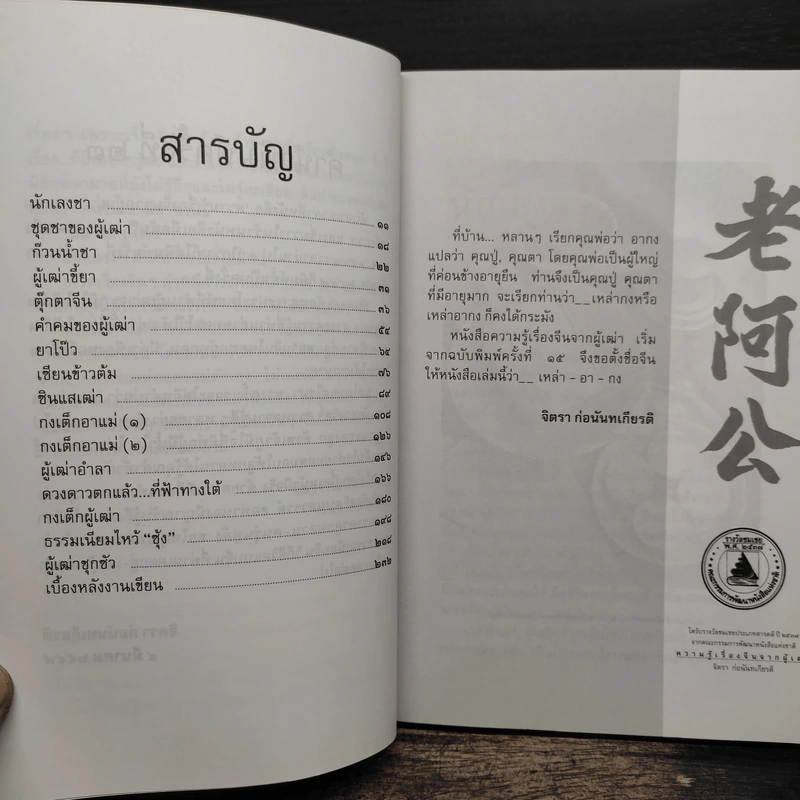 สารบัญ
นักเลงชา ๑๑
ชุดชาของผู้เฒ่า ๑๘
ก๊วนน้ำชา ๒๒
ผู้เฒ่าขี้ยา ๓๑
ตุ๊กตาจีน ๓๖
คำคมของผู้เฒ่า ๕๔
ยาโป๊ว ๖๔
เซียนข้าวต้ม ๗๖
ซินแสเฒ่า ๘๙
กงเต็กอาแม่ (๑) ๑๐๘
กงเต็กอาแม่ (๒) ๑๒๖
ผู้เฒ่าอำลา ๑๔๖
ดวงดาวตกแล้ว...ที่ฟ้าทางใต้ ๑๖๖
กงเต็กผู้เฒ่า ๑๘๐
ธรรมเนียมไหว้ "ซุ้ง" ๑๙๘
ผู้เฒ่าซุกซัว ๒๑๘
เบื้องหลังงานเขียน ๒๓๒
ที่บ้าน... หลานๆ เรียกคุณพ่อว่า อากง
แปลว่า คุณปู่, คุณตา โดยคุณพ่อเป็นผู้ใหญ่
ที่ค่อนข้างอายุยืน ท่านจึงเป็นคุณปู่ คุณตา
ที่มีอายุมาก จะเรียกท่านว่า__เหล่ากงหรือ
เหล่าอากง ก็คงได้กระมัง
หนังสือความรู้เรื่องจีนจากผู้เฒ่า เริ่ม
จากฉบับพิมพ์ครั้งที่ ๑๕ จึงขอตั้งชื่อจีน
ให้หนังสือเล่มนี้ว่า__ เหล่า - อา - กง
จิตรา ก่อนันทเกียรติ
老阿公
รางวัลชมเชย
พ.ศ. ๒๕๓๗
คณะกรรมการพัฒนาหนังสือแห่งชาติ
ได้รับรางวัลชมเชยประเภทสารคดี ปี ๒๕๓๗
จากคณะกรรมการพัฒนาหนังสือแห่งชาติ
ความรู้เรื่องจีนจากผู้เ
จิตรา ก่อนันทเกียรติ